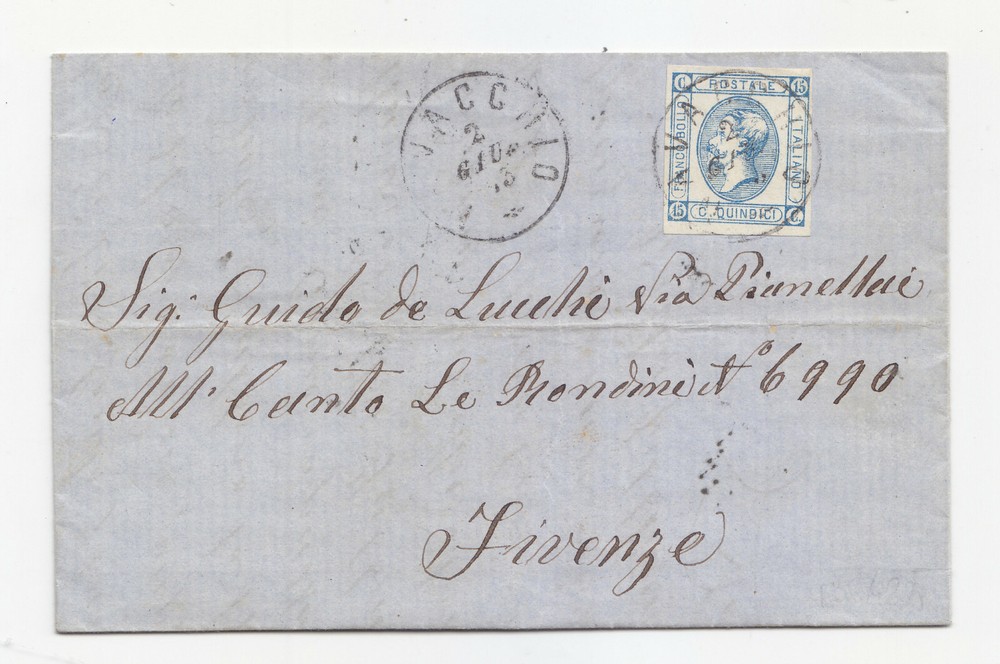 VACCHIO
2
GIU
C. POSTALE 15
FRANCO BOLLO
ITALIANO
15 C. QUINDICI C.
Sig. Guido de Lucchi Via Pianellai
All' Canto Le Rondini N° 6990
Firenze